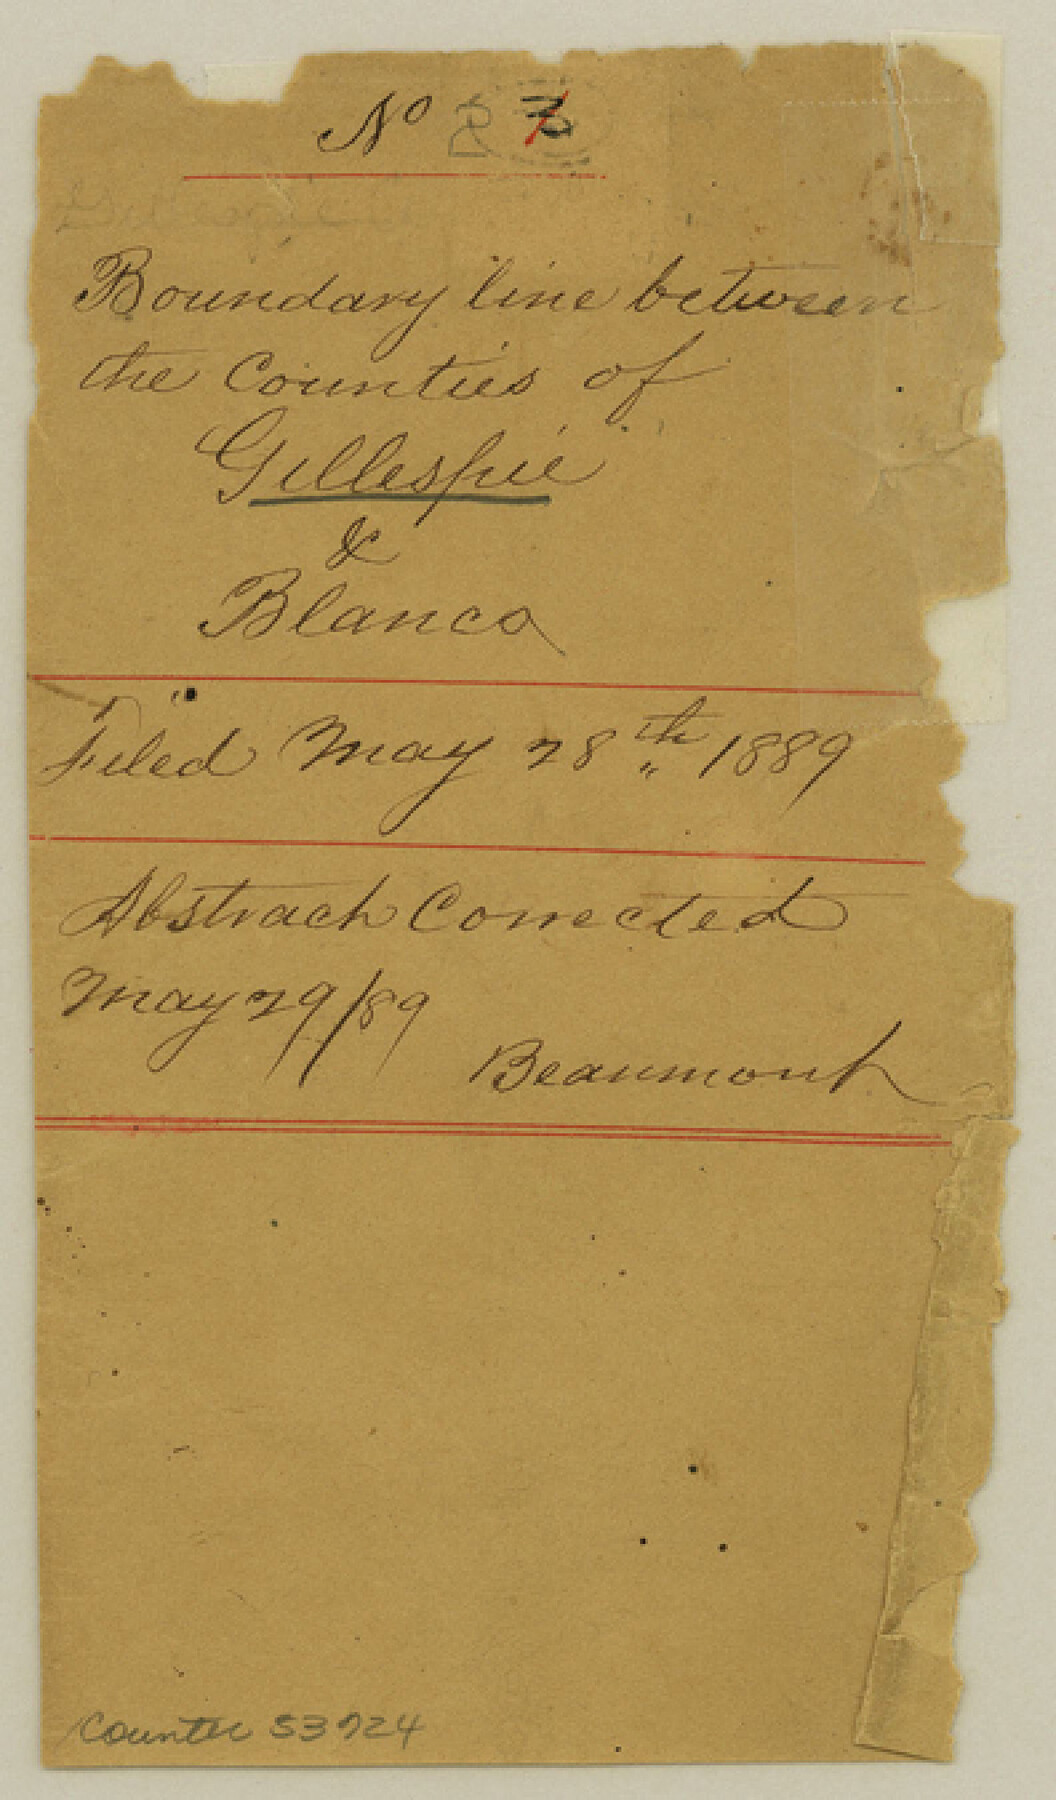 No 3
Boundary line between
the Counties of
Gillespie
&
Blanco
Filed May 28th 1889
Abstract Corrected
May 29/89
Beaumont
Counter 53724